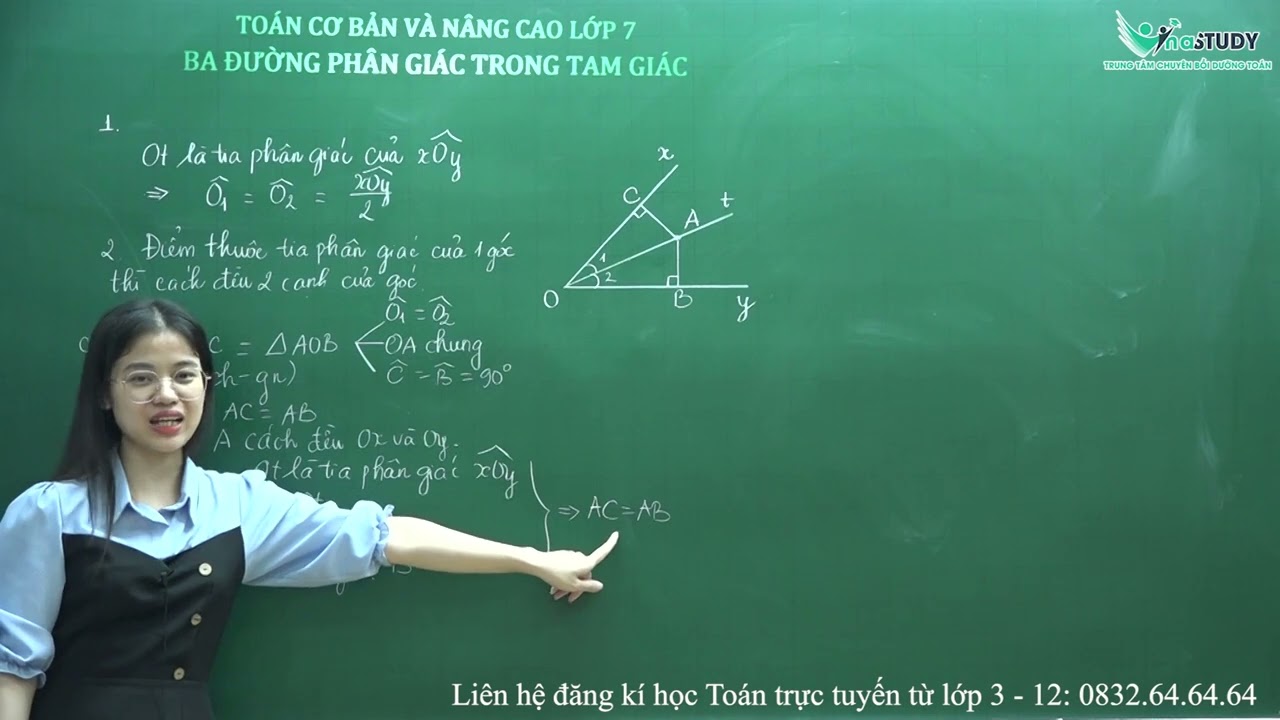 TOÁN CƠ BẢN VÀ NÂNG CAO LỚP 7
BA ĐƯỜNG PHÂN GIÁC TRONG TAM GIÁC
VinaSTUDY
TRUNG TÂM CHUYÊN BỒI DƯỠNG TOÁN
1.
Ot là tia phân giác của xÔy
⇒ Ô1 = Ô2 = xÔy/2
2. Điểm thuộc tia phân giác của 1 góc
thì cách đều 2 cạnh của góc.
Ô1 = Ô2
C = △AOB
OA chung
Ĉ = B̂ = 90°
ch-gn)
AC = AB
A cách đều Ox và Oy.
Ot là tia phân giác xÔy
⇒ AC = AB
x
C
A
t
1
2
O
B
y
Liên hệ đăng kí học Toán trực tuyến từ lớp 3 - 12: 0832.64.64.64